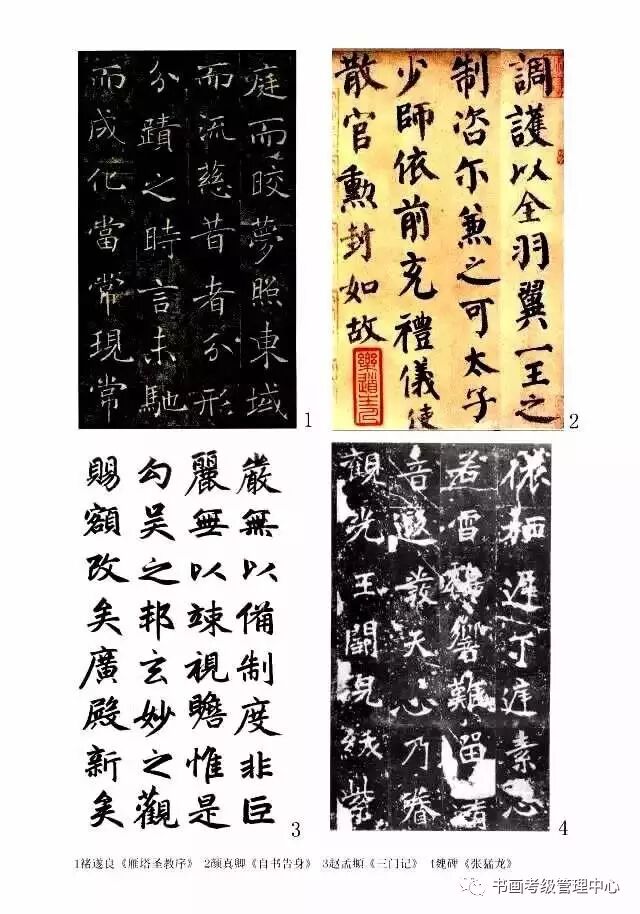 庭而皎夢照東域
而流慈昔者分形
分蹟之時言未馳
而成化當常現常
1
調護以全羽翼一王之
制咨尓兼之可太子
少師依前充禮儀使
散官勳封如故
2
嚴無以備制度非巨
麗無以竦視瞻惟是
勾吴之邦玄妙之觀
賜額改矣廣殿新矣
3
栖遲下庭素心
若雪鶴響難留清
音遐發天心乃眷
觀光玉闕紫
4
1褚遂良《雁塔圣教序》 2颜真卿《自书告身》 3赵孟頫《三门记》 4魏碑《张猛龙》
书画考级管理中心